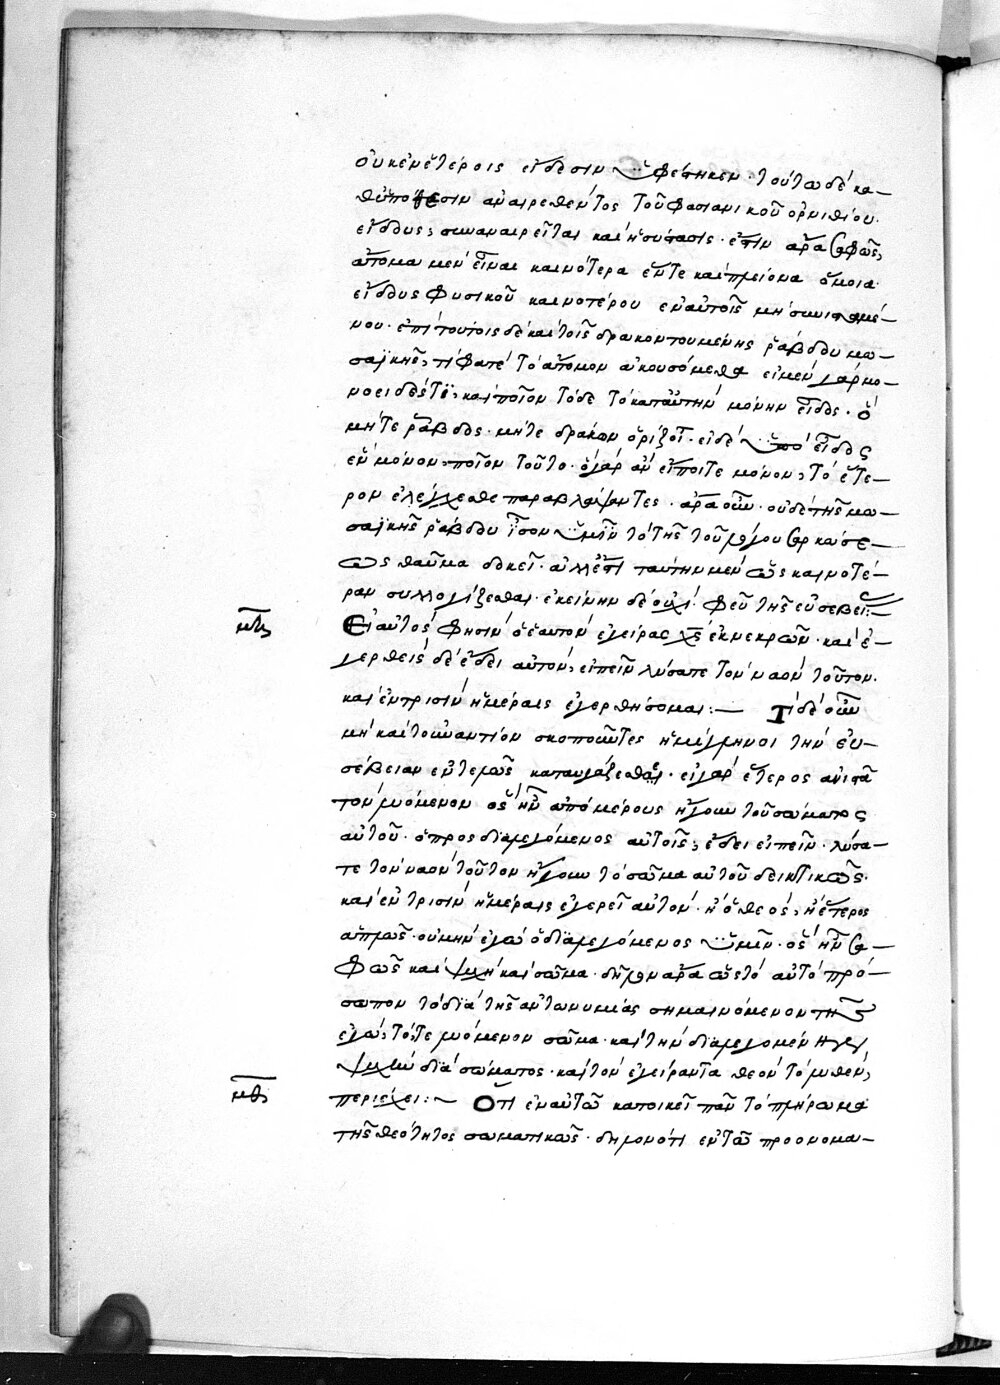 οὐκ ἐν ἑτέροις εἴδεσιν ὑφέστηκεν· τούτω δὲ κα–
θ' ὑπόθεσιν ἀναιρεθέντος τοῦ φασιανικοῦ ὀρνιθίου
εἴδους, συναναιρεῖται καὶ ἡ σύστασις· ἔστιν ἄρα σαφῶς,
ἄτομα μὲν εἶναι καινότερα ἕν τε καὶ πλείονα ὅμοια
εἴδους φυσικοῦ καινοτέρου ἐν αὐτοῖς μὴ συνισταμέ–
νου· ἐπὶ τούτοις δὲ καὶ τοῖς δρακοντουμένης ῥάβδου μω–
σαϊκῆς, τί φατὲ τὸ ἄτομον ἀκουσόμεθα εἰ μὲν γὰρ μο–
νοειδές τι, καὶ ποῖον τόδε τὸ κατ' αὐτὴν μόνην εἶδος· ὃ
μήτε ῥάβδος· μήτε δράκων ὁρίζοι· εἰ δὲ εἶδος
ἓν μόνον, ποῖον τοῦτο· ὃ γὰρ ἂν εἴποιτε μόνον, τὸ ἕτε–
ρον ἐλέγχεσθε παραβλάψαντες· ἆρα οὖν· οὐδὲ τῆς μω–
σαϊκῆς ῥάβδου ἶσον ὑμῖν τὸ τῆς τοῦ λόγου σαρκώσε–
ως θαῦμα δοκεῖ· ἀλλ' ἐπὶ ταύτην μὲν ὡς καινοτέ–
ραν συλλογίζεσθαι· ἐκείνην δὲ οὐχί· φεῦ τῆς εὐσεβείας:
μζ Εἰ αὐτὸς φησὶν ὁ ἑαυτὸν ἐγείρας χς ἐκ νεκρῶν· καὶ ἐ–
γερθεὶς δὲ ἔδει αὐτὸν, εἰπεῖν λύσατε τὸν ναὸν τοῦτον·
καὶ ἐν τρισὶν ἡμέραις ἐγερθήσομαι:— Τί δὲ οὖν
μὴ καὶ τοὐναντίον σκοποῦντες ἡμεῖς τὴν εὐ–
σέβειαν ἐντελῶς καταυγάζεσθαι· εἰ γὰρ ἕτερος ἀνιστᾶ
τὸν λυόμενον ὃς ἦν ἀπὸ μέρους ἤγουν τοῦ σώματος
αὐτοῦ· ὁ προσδιαλεγόμενος αὐτοῖς, ἔδει εἰπεῖν· λύσα–
τε τὸν ναὸν τοῦτον ἤγουν τὸ σῶμα αὐτοῦ δεικτικῶς·
καὶ ἐν τρισὶν ἡμέραις ἐγερεῖ αὐτὸν· ἢ ὁ θεὸς, ἢ ἕτερος
ἁπλῶς· οὐ μὴν ἐγὼ ὁ διαλεγόμενος ὑμῖν· ὃς ἦν σα–
φῶς καὶ ψυχὴ καὶ σῶμα· δῆλον ἄρα ὡς τὸ αὐτὸ πρό–
σωπον τὸ διὰ τῆς ἀντωνυμίας σημαινόμενον τῆς
ἐγώ, τό, τε λυόμενον σῶμα· καὶ τὴν διαλεγομένην
ψυχὴν διὰ σώματος· καὶ τὸν ἐγείραντα θεὸν τὸ λυθὲν,
μθ περιέχει:~ Ὅτι ἐν αὐτῶ κατοικεῖ πᾶν τὸ πλήρωμα
τῆς θεότητος σωματικῶς· δηλονότι ἐν τῶ προονομα–